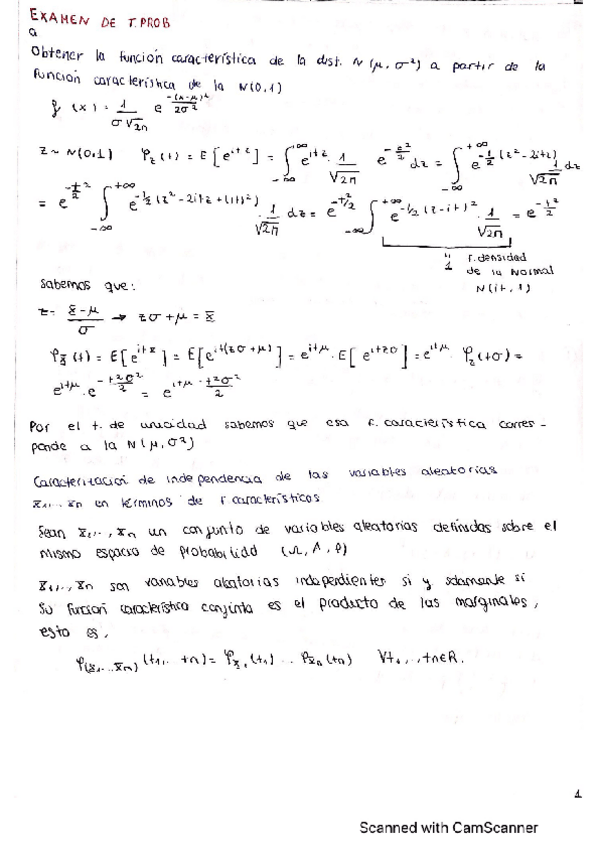 EXAMEN DE T. PROB
a
Obtener la función característica de la dist. N(μ, σ²) a partir de la
función característica de la N(0,1)
f (x) = 1/(σ√2π) e^(-(x-μ)²/2σ²)
z ~ N(0,1) φ_z(t) = E[e^(itz)] = ∫_{-∞}^{+∞} e^(itz) · 1/√2π e^(-z²/2) dz = ∫_{-∞}^{+∞} e^(-1/2 (z² - 2itz)) 1/√2π dz
= e^(-t²/2) ∫_{-∞}^{+∞} e^(-1/2 (z² - 2itz + (it)²)) · 1/√2π dz = e^(-t²/2) ∫_{-∞}^{+∞} e^(-1/2 (z - it)²) · 1/√2π = e^(-t²/2)
" f. densidad
1 de la Normal
N(it, 1)
Sabemos que:
z = (X - μ)/σ → zσ + μ = X
φ_X(t) = E[e^(itX)] = E[e^(it(zσ + μ))] = e^(itμ) · E[e^(itzσ)] = e^(itμ) · φ_z(tσ) =
e^(itμ) · e^(-t²σ²/2) = e^(itμ - t²σ²/2)
Por el t. de unicidad sabemos que esa f. característica corres-
ponde a la N(μ, σ²)
Caracterización de independencia de las variables aleatorias
X1,.. Xn en términos de f característicos
Sean X1,.., Xn un conjunto de variables aleatorias definidas sobre el
mismo espacio de probabilidad (Ω, A, P)
X1,.., Xn son variables aleatorias independientes si y solamente si
su función característica conjunta es el producto de las marginales,
esto es,
φ(X1,..Xn) (t1,.. tn) = φX1 (t1) .. φXn (tn) ∀t1,.., tn∈R.
1
Scanned with CamScanner